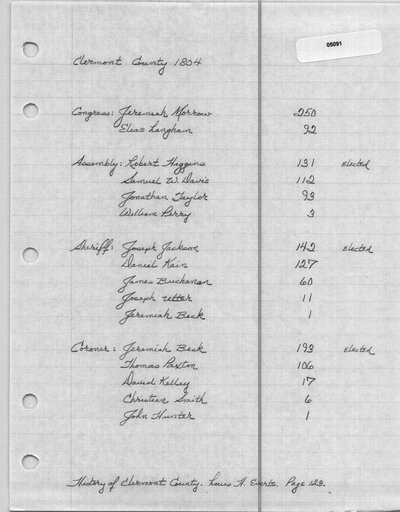 05091
Clermont County 1804
Congress: Jeremiah Morrow 250
Elias Langham 92
Assembly: Robert Higgins 131 elected
Samuel W. Davis 112
Jonathan Taylor 93
William Perry 3
Sheriff: Joseph Jackson 142 elected
Daniel Kain 127
James Buchanan 60
Joseph Utter 11
Jeremiah Beck 1
Coroner: Jeremiah Beck 193 elected
Thomas Paxton 106
David Kelley 17
Christian Smith 6
John Hunter 1
History of Clermont County. Louis H. Everts. Page 123.